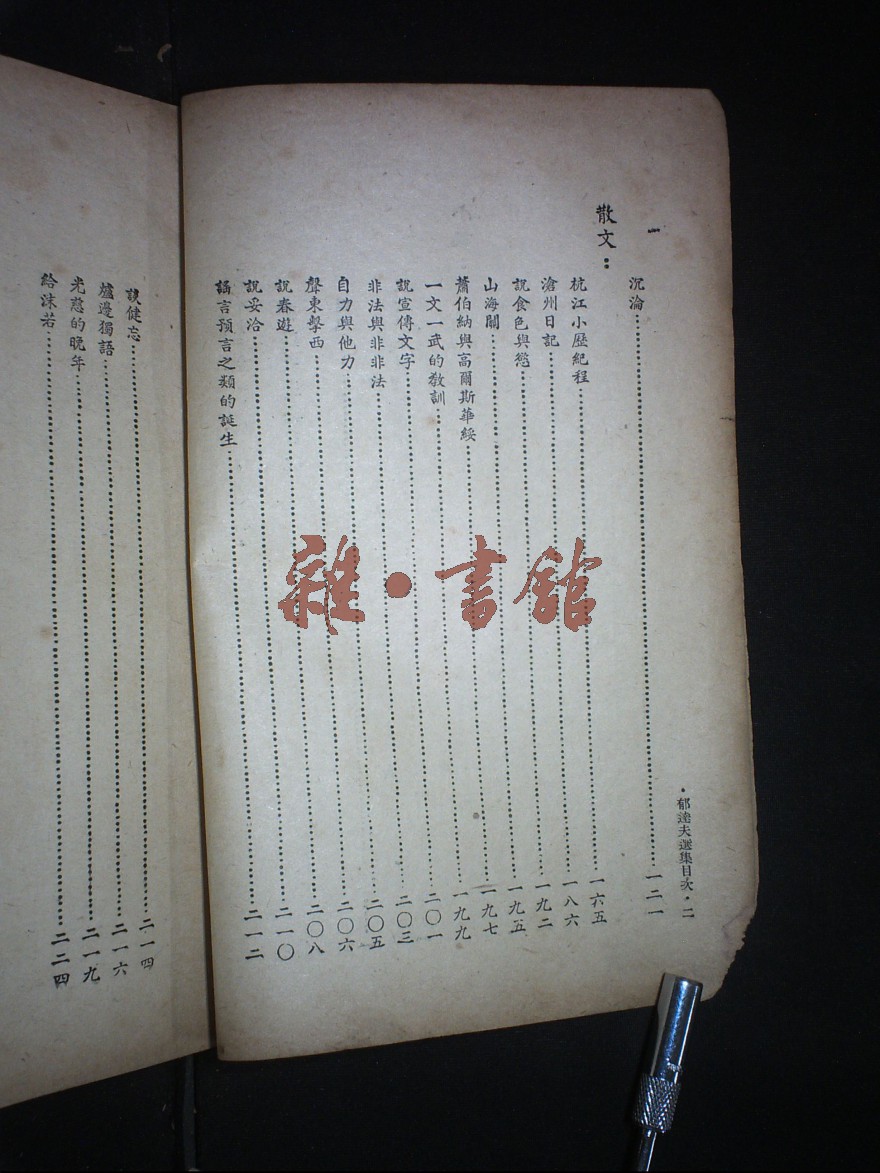 ·郁達夫選集目次·二
一
沉淪……一二一
散文：
杭江小歷紀程……一六五
滄州日記……一八六
説食色與慾……一九二
山海關……一九五
蕭伯納與高爾斯華綏……一九七
一文一武的教訓……一九九
説宣傳文字……二〇一
非法與非非法……二〇三
自力與他力……二〇五
聲東擊西……二〇六
説春遊……二〇八
説妥洽……二一〇
謠言預言之類的誕生……二一二
談健忘……二一四
爐邊獨語……二一六
光慈的晚年……二一九
給沫若……二二四
雜·書館